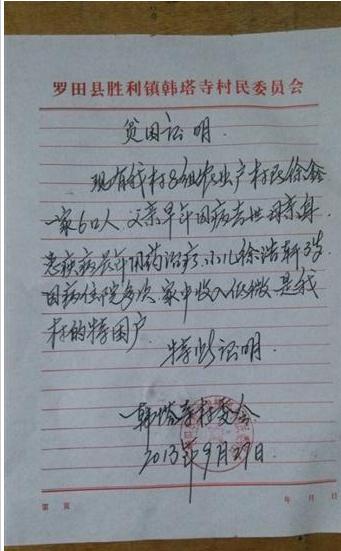 罗田县胜利镇韩塔寺村民委员会
贫困证明.
现有我村8组农业户村民徐鑫
一家6口人 父亲早年因病去世 母亲身
患疾病长年用药治疗,小儿徐浩轩3岁
因病住院多次,家中收入低微,是我
村的特困户.
特此证明.
韩塔寺村委会
2013年9月29日.
第 页 年 月 日